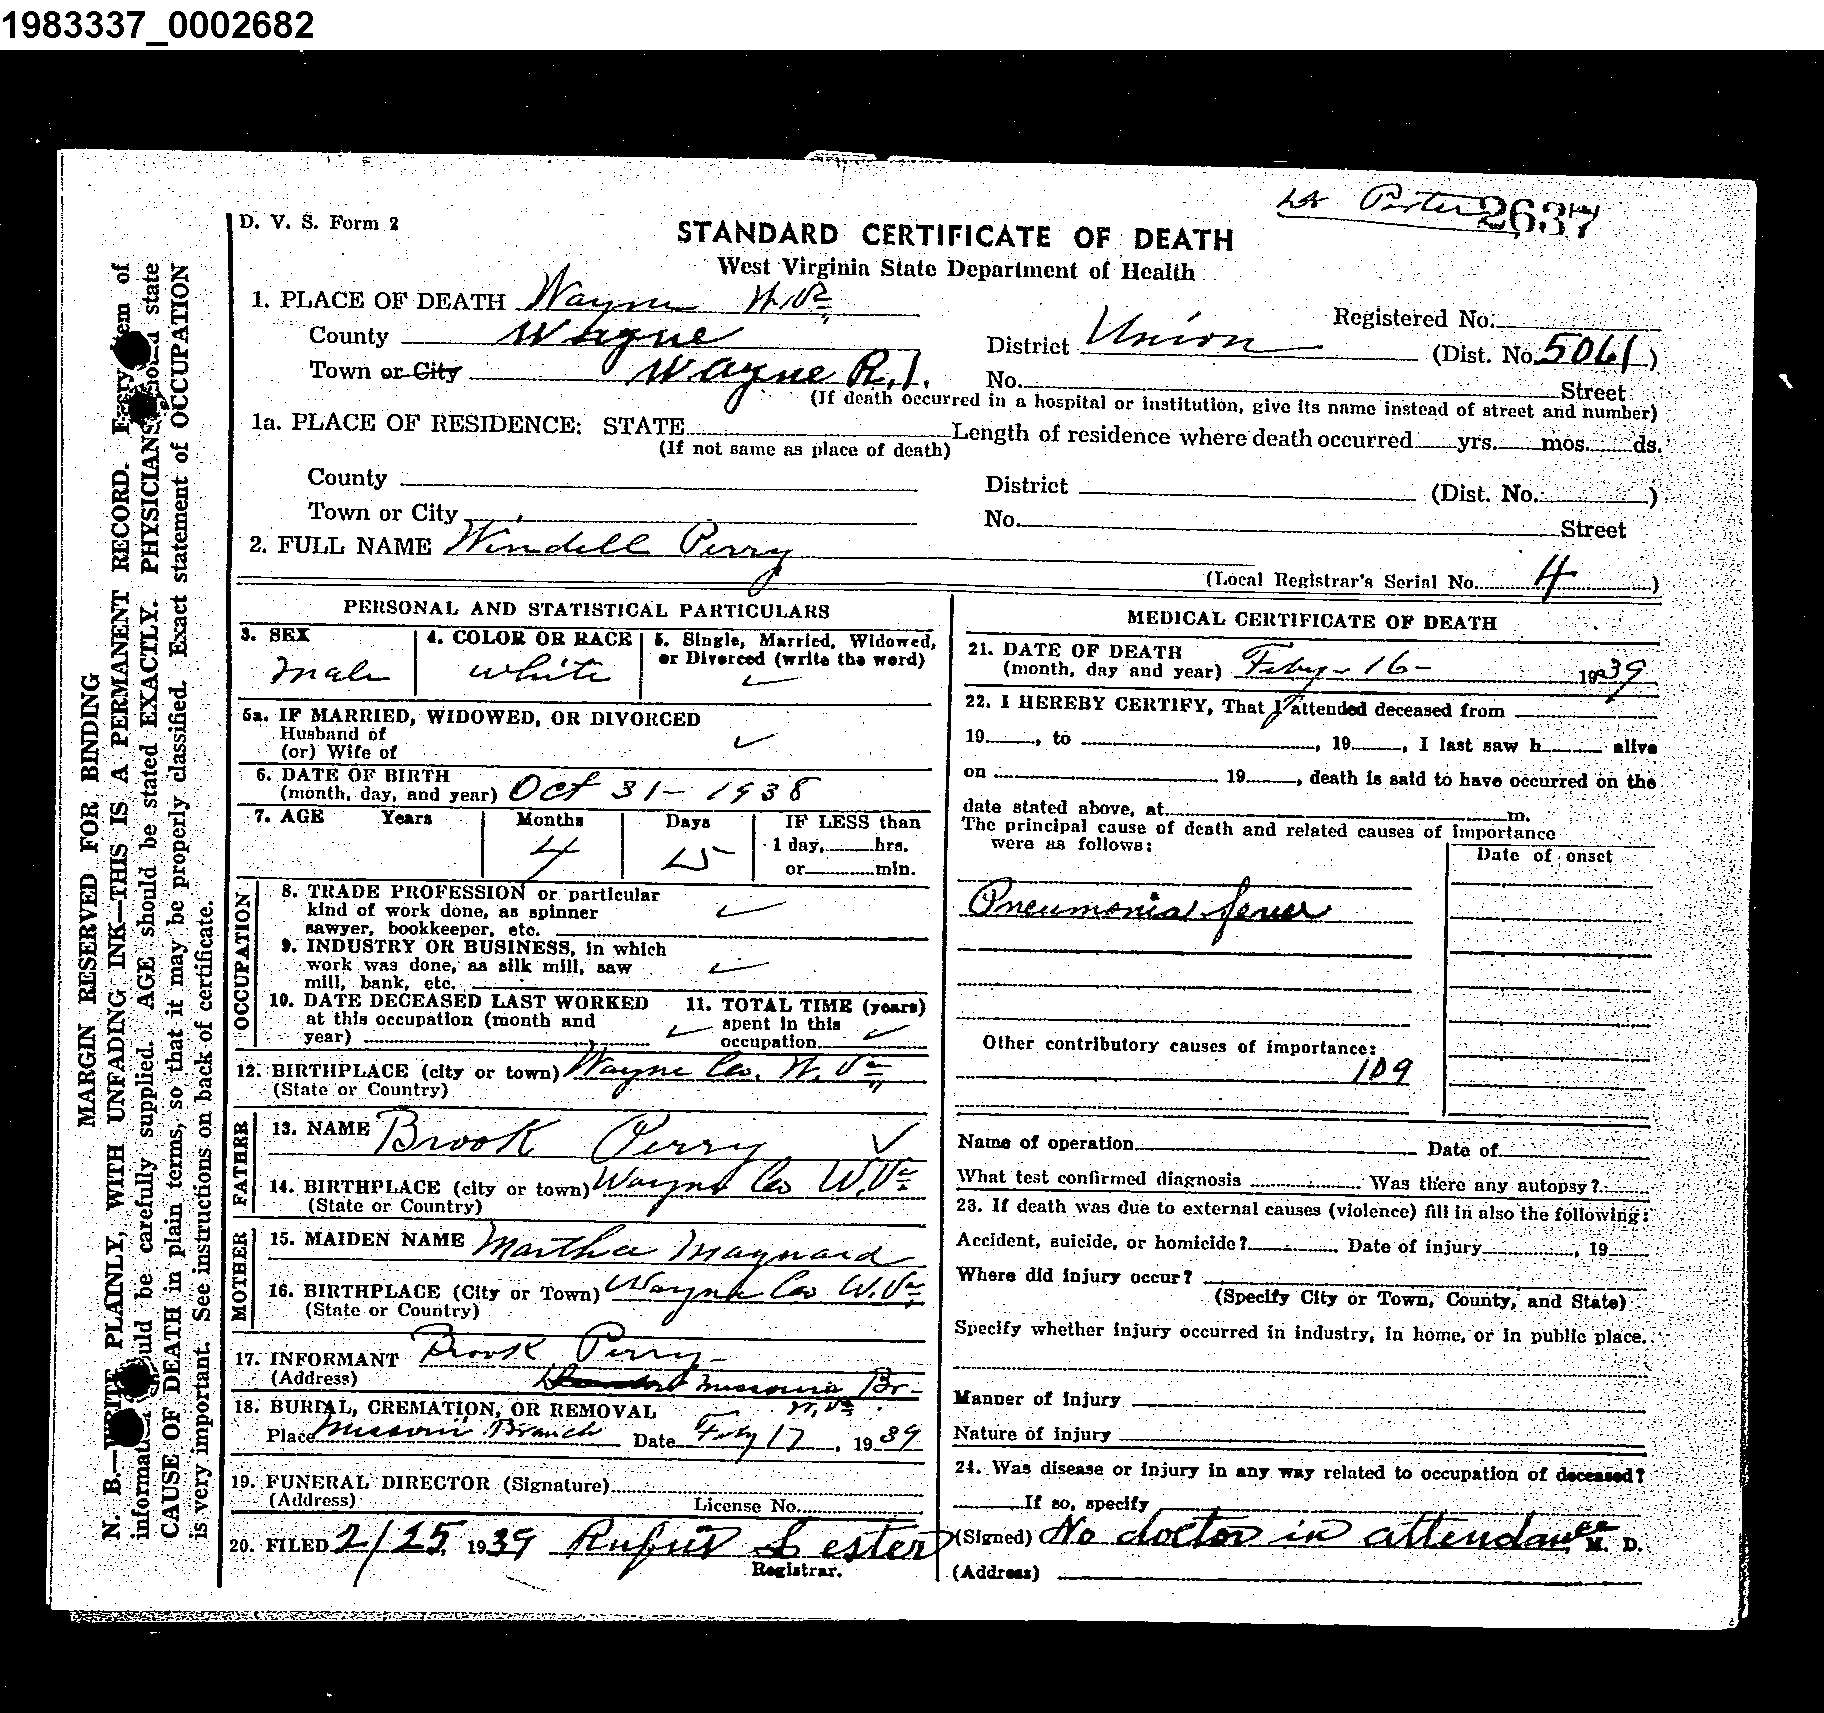 1983337_0002682
2637
D. V. S. Form 2
STANDARD CERTIFICATE OF DEATH
West Virginia State Department of Health
1. PLACE OF DEATH Wayne W.Va.
Registered No.
County Wayne
District Union (Dist. No. 5061)
Town or City Wayne R.1.
No. Street
(If death occurred in a hospital or institution, give its name instead of street and number)
1a. PLACE OF RESIDENCE: STATE
Length of residence where death occurred yrs. mos. ds.
(If not same as place of death)
County
District (Dist. No. )
Town or City
No. Street
2. FULL NAME Windell Perry
(Local Registrar's Serial No. 4 )
PERSONAL AND STATISTICAL PARTICULARS
3. SEX
male
4. COLOR OR RACE
white
5. Single, Married, Widowed,
or Divorced (write the word)
5a. IF MARRIED, WIDOWED, OR DIVORCED
Husband of
(or) Wife of
6. DATE OF BIRTH
(month, day, and year) Oct 31 - 1938
7. AGE Years Months Days IF LESS than
4 15 1 day, hrs.
or min.
OCCUPATION
8. TRADE PROFESSION or particular
kind of work done, as spinner
sawyer, bookkeeper, etc.
9. INDUSTRY OR BUSINESS, in which
work was done, as silk mill, saw
mill, bank, etc.
10. DATE DECEASED LAST WORKED
at this occupation (month and
year)
11. TOTAL TIME (years)
spent in this
occupation
12. BIRTHPLACE (city or town) Wayne Co. W. Va.
(State or Country)
FATHER
13. NAME Brook Perry
14. BIRTHPLACE (city or town) Wayne Co W.Va.
(State or Country)
MOTHER
15. MAIDEN NAME Martha Maynard
16. BIRTHPLACE (City or Town) Wayne Co W.Va.
(State or Country)
17. INFORMANT Brook Perry
(Address) Missouri Br-
W.Va.
18. BURIAL, CREMATION, OR REMOVAL
Place Missouri Branch Date Feby 17, 1939
19. FUNERAL DIRECTOR (Signature)
(Address) License No.
20. FILED 2/25 1939 Rufus Lester
Registrar.
MEDICAL CERTIFICATE OF DEATH
21. DATE OF DEATH
(month, day and year) Feby - 16 - 1939
22. I HEREBY CERTIFY, That I attended deceased from
19 , to , 19 , I last saw h alive
on 19 , death is said to have occurred on the
date stated above, at m.
The principal cause of death and related causes of importance
were as follows:
Date of onset
Pneumonia fever
Other contributory causes of importance:
109
Name of operation Date of
What test confirmed diagnosis Was there any autopsy?
23. If death was due to external causes (violence) fill in also the following:
Accident, suicide, or homicide? Date of injury , 19
Where did injury occur?
(Specify City or Town, County, and State)
Specify whether injury occurred in industry, in home, or in public place.
Manner of injury
Nature of injury
24. Was disease or injury in any way related to occupation of deceased?
If so, specify
(Signed) No doctor in attendance M. D.
(Address)
MARGIN RESERVED FOR BINDING
N. B.—WRITE PLAINLY, WITH UNFADING INK—THIS IS A PERMANENT RECORD. Every item of
information should be carefully supplied. AGE should be stated EXACTLY. PHYSICIANS should state
CAUSE OF DEATH in plain terms, so that it may be properly classified. Exact statement of OCCUPATION
is very important. See instructions on back of certificate.